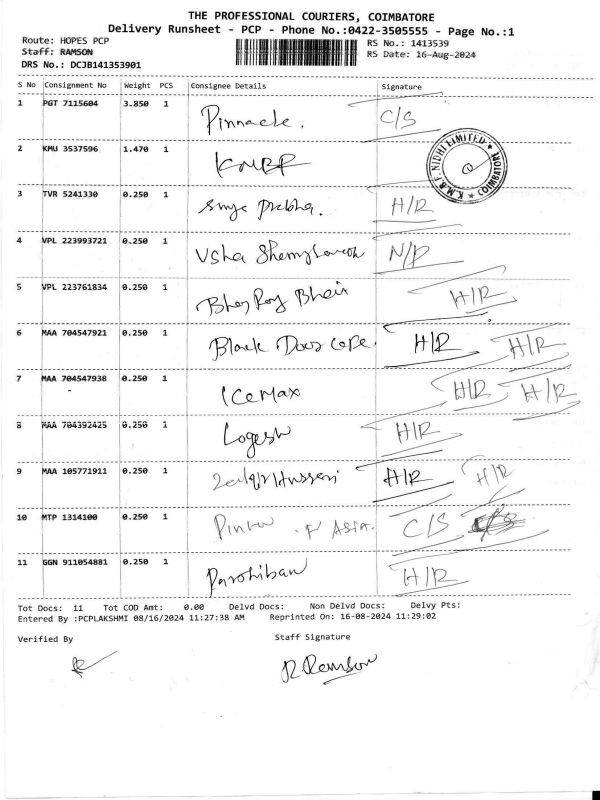 THE PROFESSIONAL COURIERS, COIMBATORE
Delivery Runsheet - PCP - Phone No.:0422-3505555 - Page No.:1
Route: HOPES PCP RS No.: 1413539
Staff: RAMSON RS Date: 16-Aug-2024
DRS No.: DCJB141353901
S No Consignment No Weight PCS Consignee Details Signature
1 PGT 7115604 3.850 1 Pinnacle. C/S
2 KMU 3537596 1.470 1 K.M.B.F. NIDHI LIMITED COIMBATORE
3 TVR 5241330 0.250 1 Prabha. H/R
4 VPL 223993721 0.250 1 Usha N/P
5 VPL 223761834 0.250 1 H/R
6 MAA 704547921 0.250 1 Black H/R H/R
7 MAA 704547938 0.250 1 ICeMax H/R H/R
-
8 MAA 704392425 0.250 1 Logesh H/R
9 MAA 105771911 0.250 1 H/R H/R
10 MTP 1314100 0.250 1 ASIA. C/S
11 GGN 911054881 0.250 1 H/R
Tot Docs: 11 Tot COD Amt: 0.00 Delvd Docs: Non Delvd Docs: Delvy Pts:
Entered By :PCPLAKSHMI 08/16/2024 11:27:38 AM Reprinted On: 16-08-2024 11:29:02
Verified By Staff Signature
R Ramson